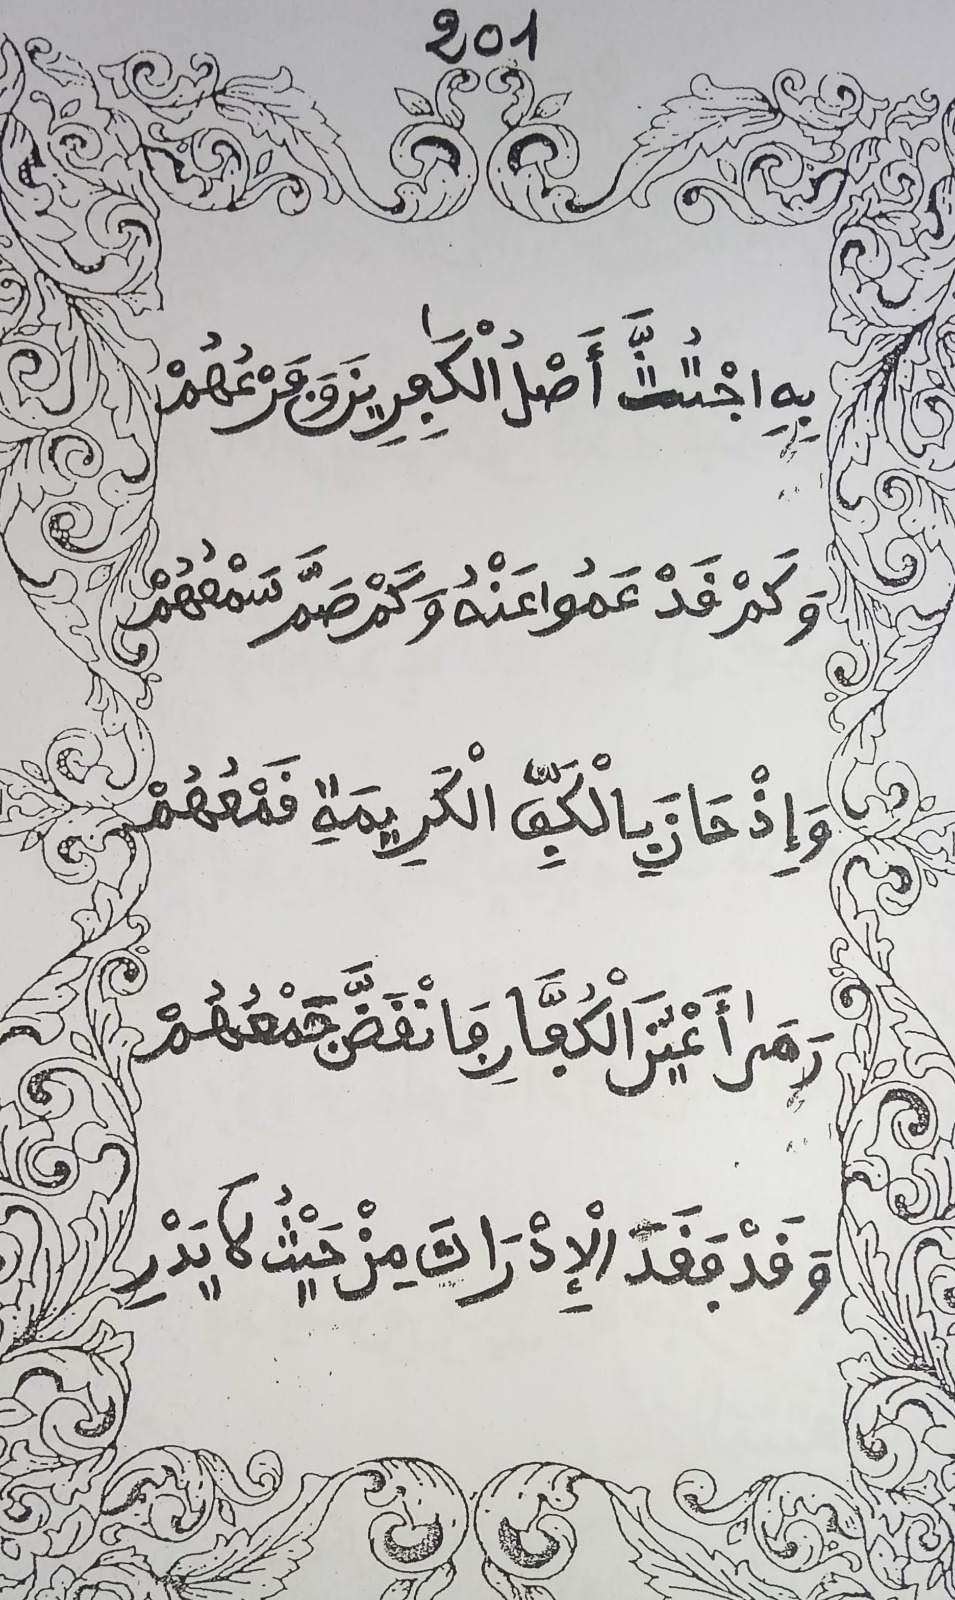 201
بِهِ اجْتُثَّ أَصْلُ الْكَٰفِرِينَ وَفَرْعُهُمْ
وَكَمْ قَدْ عَمُوا عَنْهُ وَكَمْ صَمَّ سَمْعُهُمْ
وَإِذْ حَانَ بِالْكَفِّ الْكَرِيمَةِ قَمْعُهُمْ
رَمَىٰ أَعْيُنَ الْكُفَّارِ فَانْفَضَّ جَمْعُهُمْ
وَقَدْ فَقَدَ الْإِدْرَاكَ مِنْ حَيْثُ لَا يَدْرِ